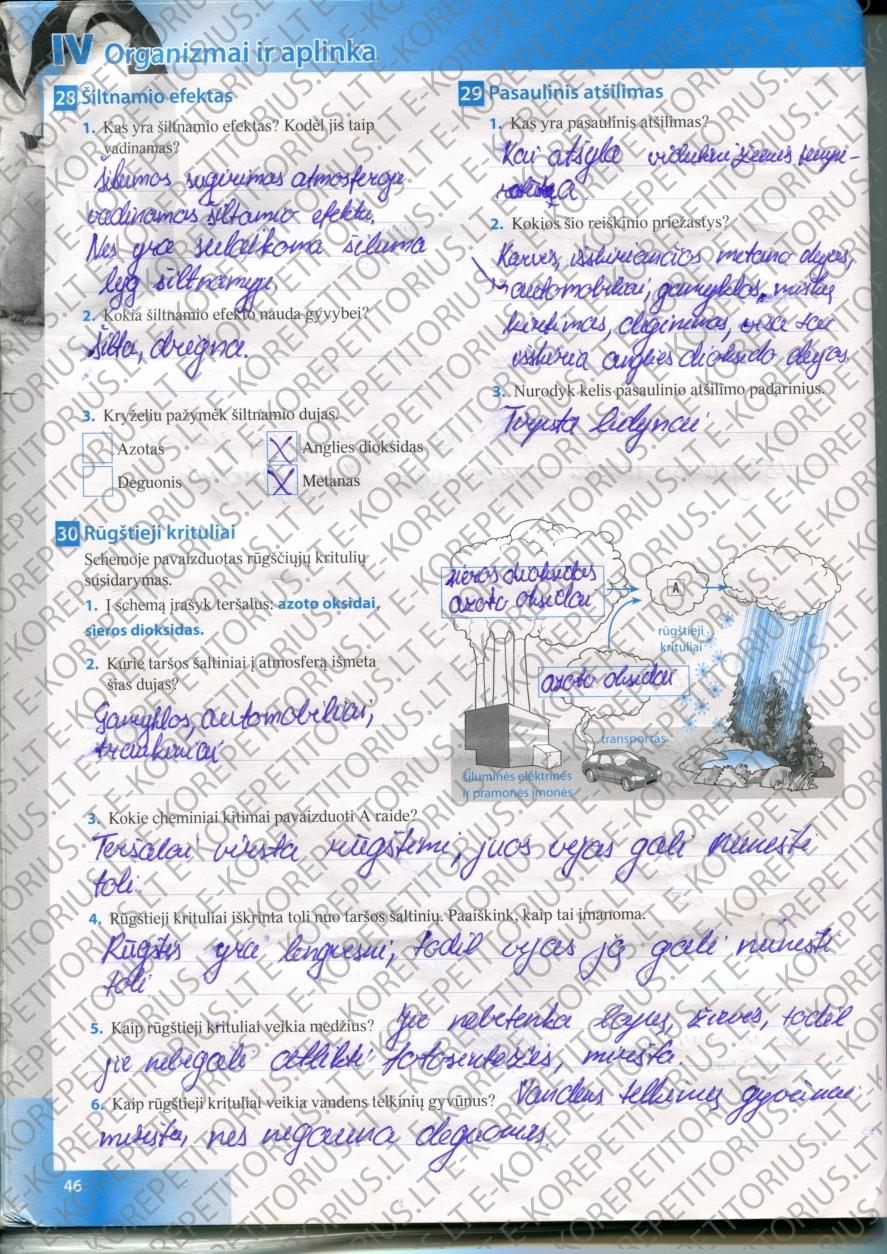 IV Organizmai ir aplinka
28 Šiltnamio efektas
1. Kas yra šiltnamio efektas? Kodėl jis taip
vadinamas?
Šilumos sugėrimas atmosferoje
vadinamas šiltamio efektu.
Nes yra sulaikoma šiluma
lyg šiltnamyje
2. Kokia šiltnamio efekto nauda gyvybei?
Šilta, drėgna.
3. Kryželiu pažymėk šiltnamio dujas.
Azotas
X Anglies dioksidas
Deguonis
X Metanas
29 Pasaulinis atšilimas
1. Kas yra pasaulinis atšilimas?
Kai atšyla vidutinė žemės tempe-
2. Kokios šio reiškinio priežastys?
Karvės, išskiriančios metano dujas,
automobiliai, gamyklos, miškų
kirtimas, deginimas, visa tai
išskiria anglies dioksido dujas
3. Nurodyk kelis pasaulinio atšilimo padarinius.
Tirpsta ledynai
30 Rūgštieji krituliai
Schemoje pavaizduotas rūgščiųjų kritulių
susidarymas.
1. Į schemą įrašyk teršalus: azoto oksidai,
sieros dioksidas.
2. Kurie taršos šaltiniai į atmosferą išmeta
šias dujas?
Gamyklos, automobiliai,
traukiniai
sieros dioksidas
azoto oksidai
A
rūgštieji
krituliai
azoto oksidai
transportas
šiluminės elektrinės
ir pramonės įmonės
3. Kokie cheminiai kitimai pavaizduoti A raide?
Teršalai virsta rūgštimi, juos vėjas gali nunešti
toli.
4. Rūgštieji krituliai iškrinta toli nuo taršos šaltinių. Paaiškink, kaip tai įmanoma.
Rūgštis yra lengvesni, todėl vėjas ją gali nunešti
toli
5. Kaip rūgštieji krituliai veikia medžius? Jie nebetenka lapų, žievės, todėl
jie nebegali atlikti fotosentezės, miršta.
6. Kaip rūgštieji krituliai veikia vandens telkinių gyvūnus? Vandens telkinių gyvūnai
miršta, nes negauna deguonies.
46
E-KOREPETITORIUS.LT